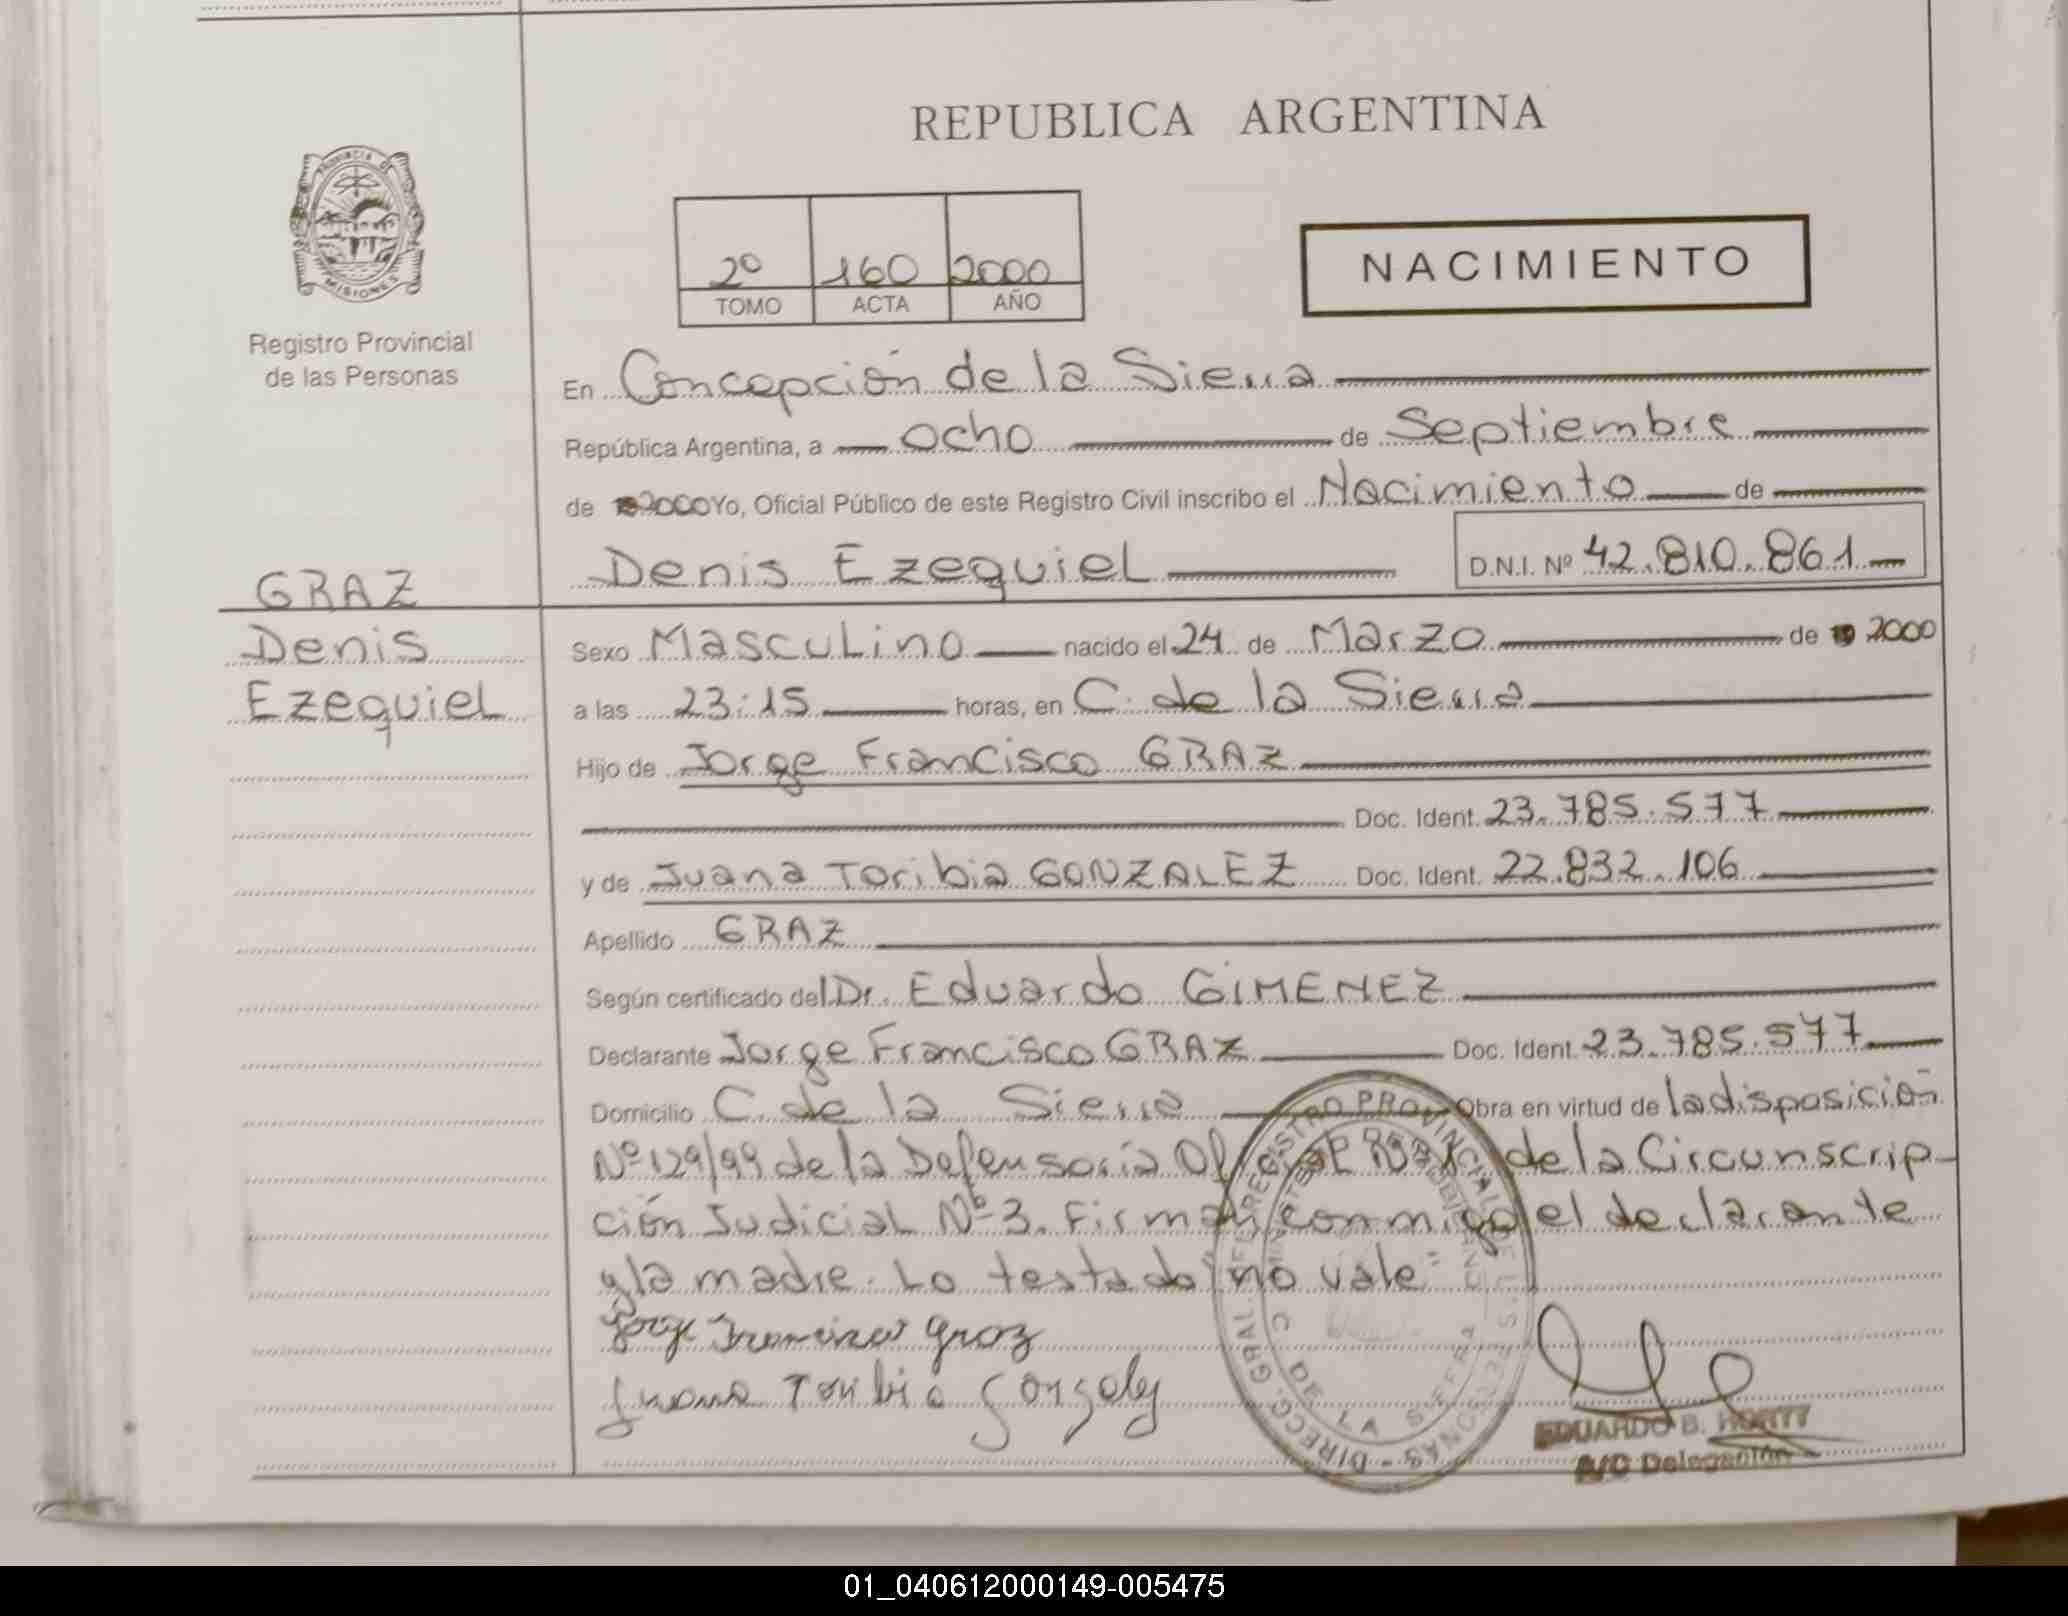 REPUBLICA ARGENTINA
PROVINCIA DE MISIONES
Registro Provincial
de las Personas
2º 160 2000
TOMO ACTA AÑO
NACIMIENTO
En Concepción de la Sierra
República Argentina, a ocho de Septiembre
de 2000 Yo, Oficial Público de este Registro Civil inscribo el Nacimiento de
Denis Ezequiel D.N.I. Nº 42.810.861
GRAZ
Denis
Ezequiel
Sexo Masculino nacido el 24 de Marzo de 2000
a las 23:15 horas, en C. de la Sierra
Hijo de Jorge Francisco GRAZ
Doc. Ident. 23.785.577
y de Juana Toribia GONZALEZ Doc. Ident. 22.832.106
Apellido GRAZ
Según certificado del Dr. Eduardo GiMENEZ
Declarante Jorge Francisco GRAZ Doc. Ident. 23.785.577
Domicilio C. de la Sierra Obra en virtud de la disposición
Nº 129/99 de la Defensoría Oficial de la Circunscrip-
ción Judicial Nº 3. Firman conmigo el declarante
y la madre. Lo testado "no vale"
Jorge Francisco Graz
Juana Toribia Gonzalez
DIRECC. GRAL. DEL REGISTRO PROVINCIAL DE LAS PERSONAS
C. DE LA SIERRA
EDUARDO B.
A/C Delegación
01_040612000149-005475